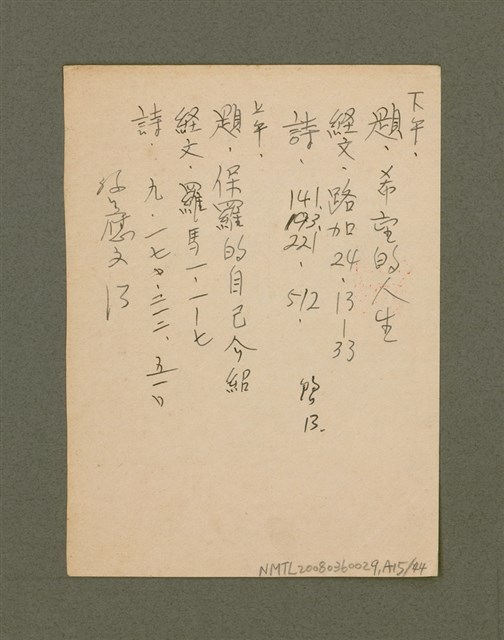 下午、
題、希望的人生
経文、路加24、13—33
詩、141、193、221、512、
13.
上午、
題、保羅的自己介紹
経文、羅馬一、一—七
詩、九、一七〇、二一二、五一〇
啟應文 13
NMTL20080360029,A15/44